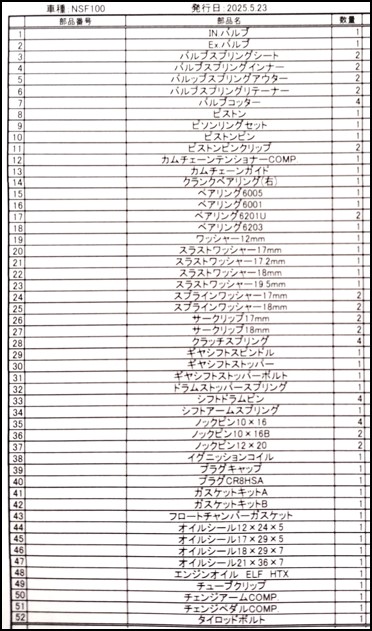 車種:NSF100 発行日:2025.5.23
部品番号 部品名 数量
1 IN.バルブ 1
2 Ex.バルブ 1
3 バルブスプリングシート 2
4 バルブスプリングインナー 2
5 バルッブスプリングアウター 2
6 バルブスプリングリテーナー 2
7 バルブコッター 4
8 ピストン 1
9 ピソンリングセット 1
10 ピストンピン 1
11 ピストンピンクリップ 2
12 カムチェーンテンショナーCOMP 1
13 カムチェーンガイド 1
14 クランクベアリング(右) 1
15 ベアリング6005 1
16 ベアリング6001 1
17 ベアリング6201U 2
18 ベアリング6203 1
19 ワッシャー12mm 1
20 スラストワッシャー17mm 1
21 スラストワッシャー17.2mm 1
22 スラストワッシャー18mm 1
23 スラストワッシャー19.5mm 1
24 スプラインワッシャー17mm 2
25 スプラインワッシャー18mm 2
26 サークリップ17mm 2
27 サークリップ18mm 2
28 クラッチスプリング 4
29 ギヤシフトスピンドル 1
30 ギヤシフトストッパー 1
31 ギヤシフトストッパーボルト 1
32 ドラムストッパースプリング 1
33 シフトドラムピン 4
34 シフトアームスプリング 1
35 ノックピン10×16 4
36 ノックピン10×16B 2
37 ノックピン12×20 2
38 イグニッションコイル 1
39 プラグキャップ 1
40 プラグCR8HSA 1
41 ガスケットキットA 1
42 ガスケットキットB 1
43 フロートチャンバーガスケット 1
44 オイルシール12×24×5 1
45 オイルシール17×29×5 1
46 オイルシール18×29×7 1
47 オイルシール21×36×7 1
48 エンジンオイル ELF HTX 1
49 チューブクリップ 1
50 チェンジアームCOMP 1
51 チェンジペダルCOMP 1
52 タイロッドボルト 1